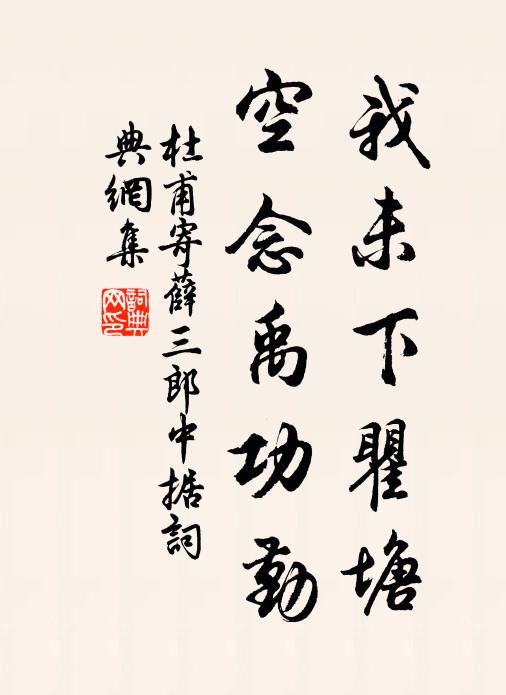 我未下瞿塘
空念禹功勤
杜甫寄薛三郎中据詞
典網集
詞典網印